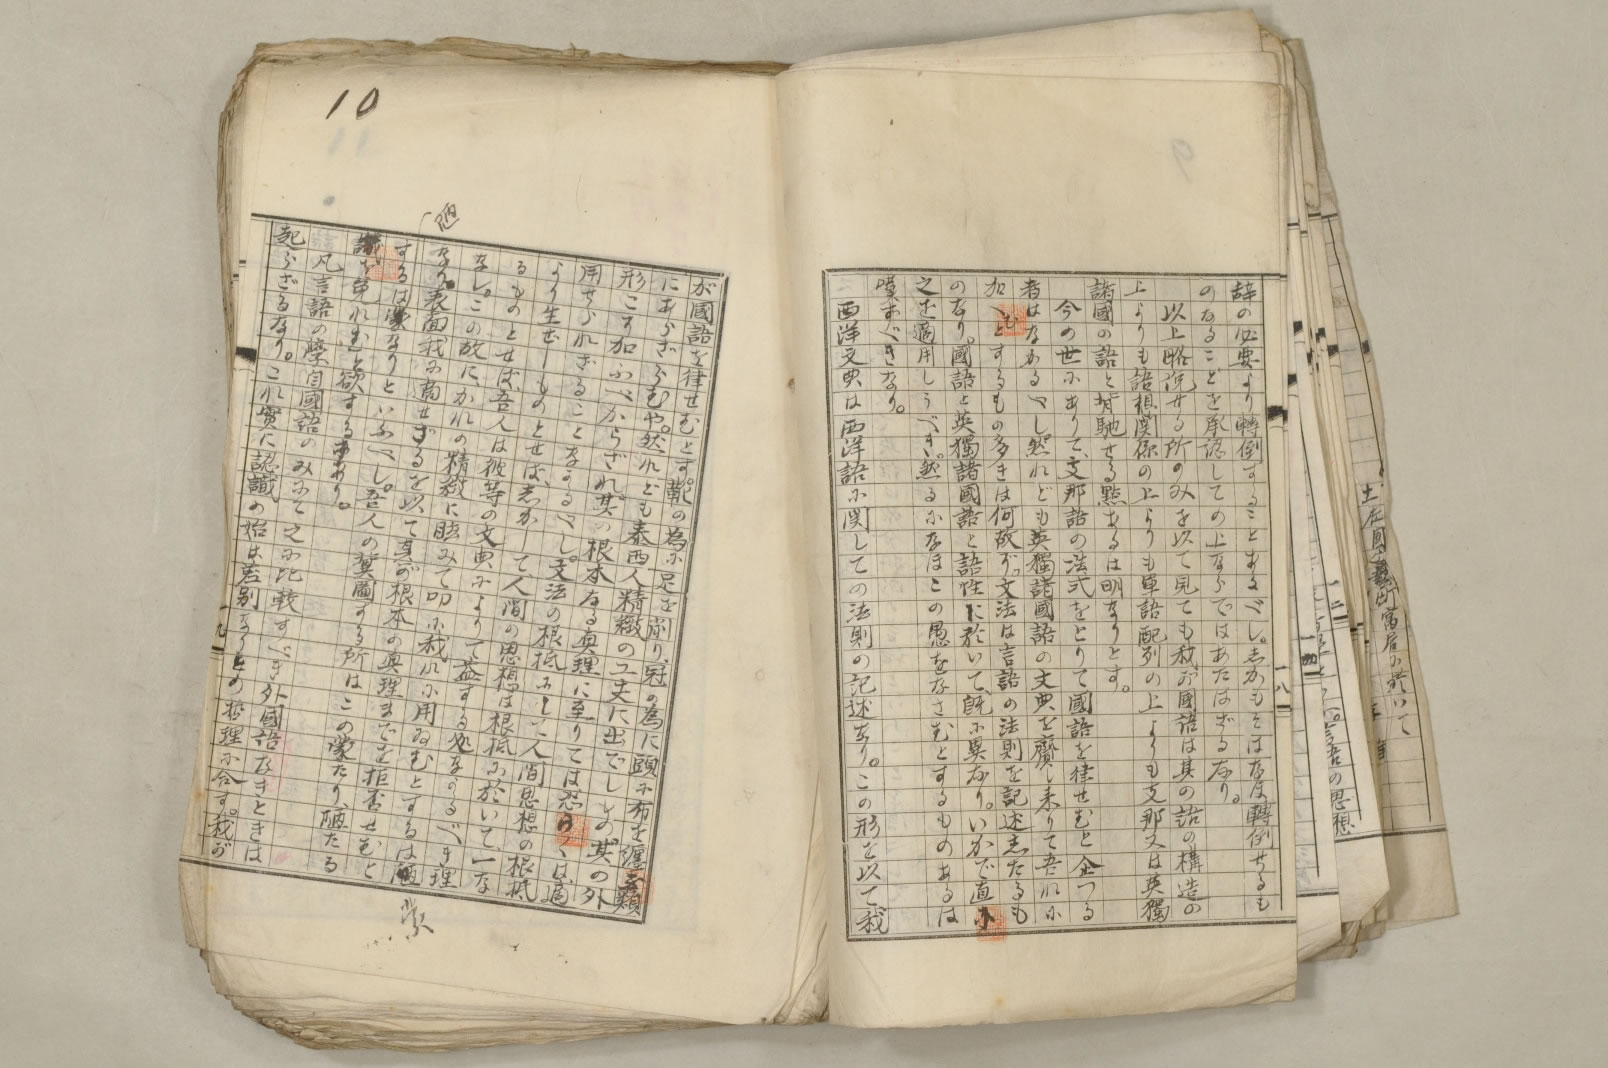 辞の必要より轉倒することあるべし。志かもそはなほ轉倒せるも
のなることを承認しての上ならではあたはざるなり。
以上略説せる所のみを以て見ても我が國語は其の語の構造の
上よりも語相関係の上よりも単語配列の上よりも支那又は英獨
諸國の語と背馳せる點あるは明なりとす。
今の世にありて、支那語の法式をとりて國語を律せむと企つる
者はなかるべし然れども英獨諸國語の文典を齎し来りて吾れに
加へむとするもの多きは何故ぞ。文法は言語の法則を記述したるも
のなり。國語と英獨諸國語と語性に於いて、既に異なり。いかで直に
之を適用しうべき。然るになほこの愚をなさむとするものあるは
嘆ずべきなり。
西洋文典は西洋語に関しての法則の記述なり。この形を以て我
一八
10
が國語を律せむとす。靴の為に足を削り、冠の為に頭に布を纏ふ類
にあらざらむや。然れども泰西人精緻の工夫に出でしもの、其の外
形こそ加ふべからざれ、其の根本なる眞理に至りては恐らくは、適
用せられざることなかるべし。文法の根柢は人間思想の根柢
より生ぜしものとせば、志かして人間の思想は根柢に於いて、一な
るものとせば、吾人は彼等の文典によりて益する処なかるべき理
なし。この故に、かれの精緻に眩みて叩に我れに用ゐむとするは陋
なり。表面我に適せざるを以て其が根本の眞理までを拒否せむと
するは蒙なりといふべし。吾人の冀圖する所はこの蒙たり、陋たる
譏を免れむと欲するにあり。
凡言語の學、自國語のみにて之に比較すべき外國語なきときは
起らざるなり。これ實に認識の始は差別なりとの哲理に合す。我が
陋
蒙
一九